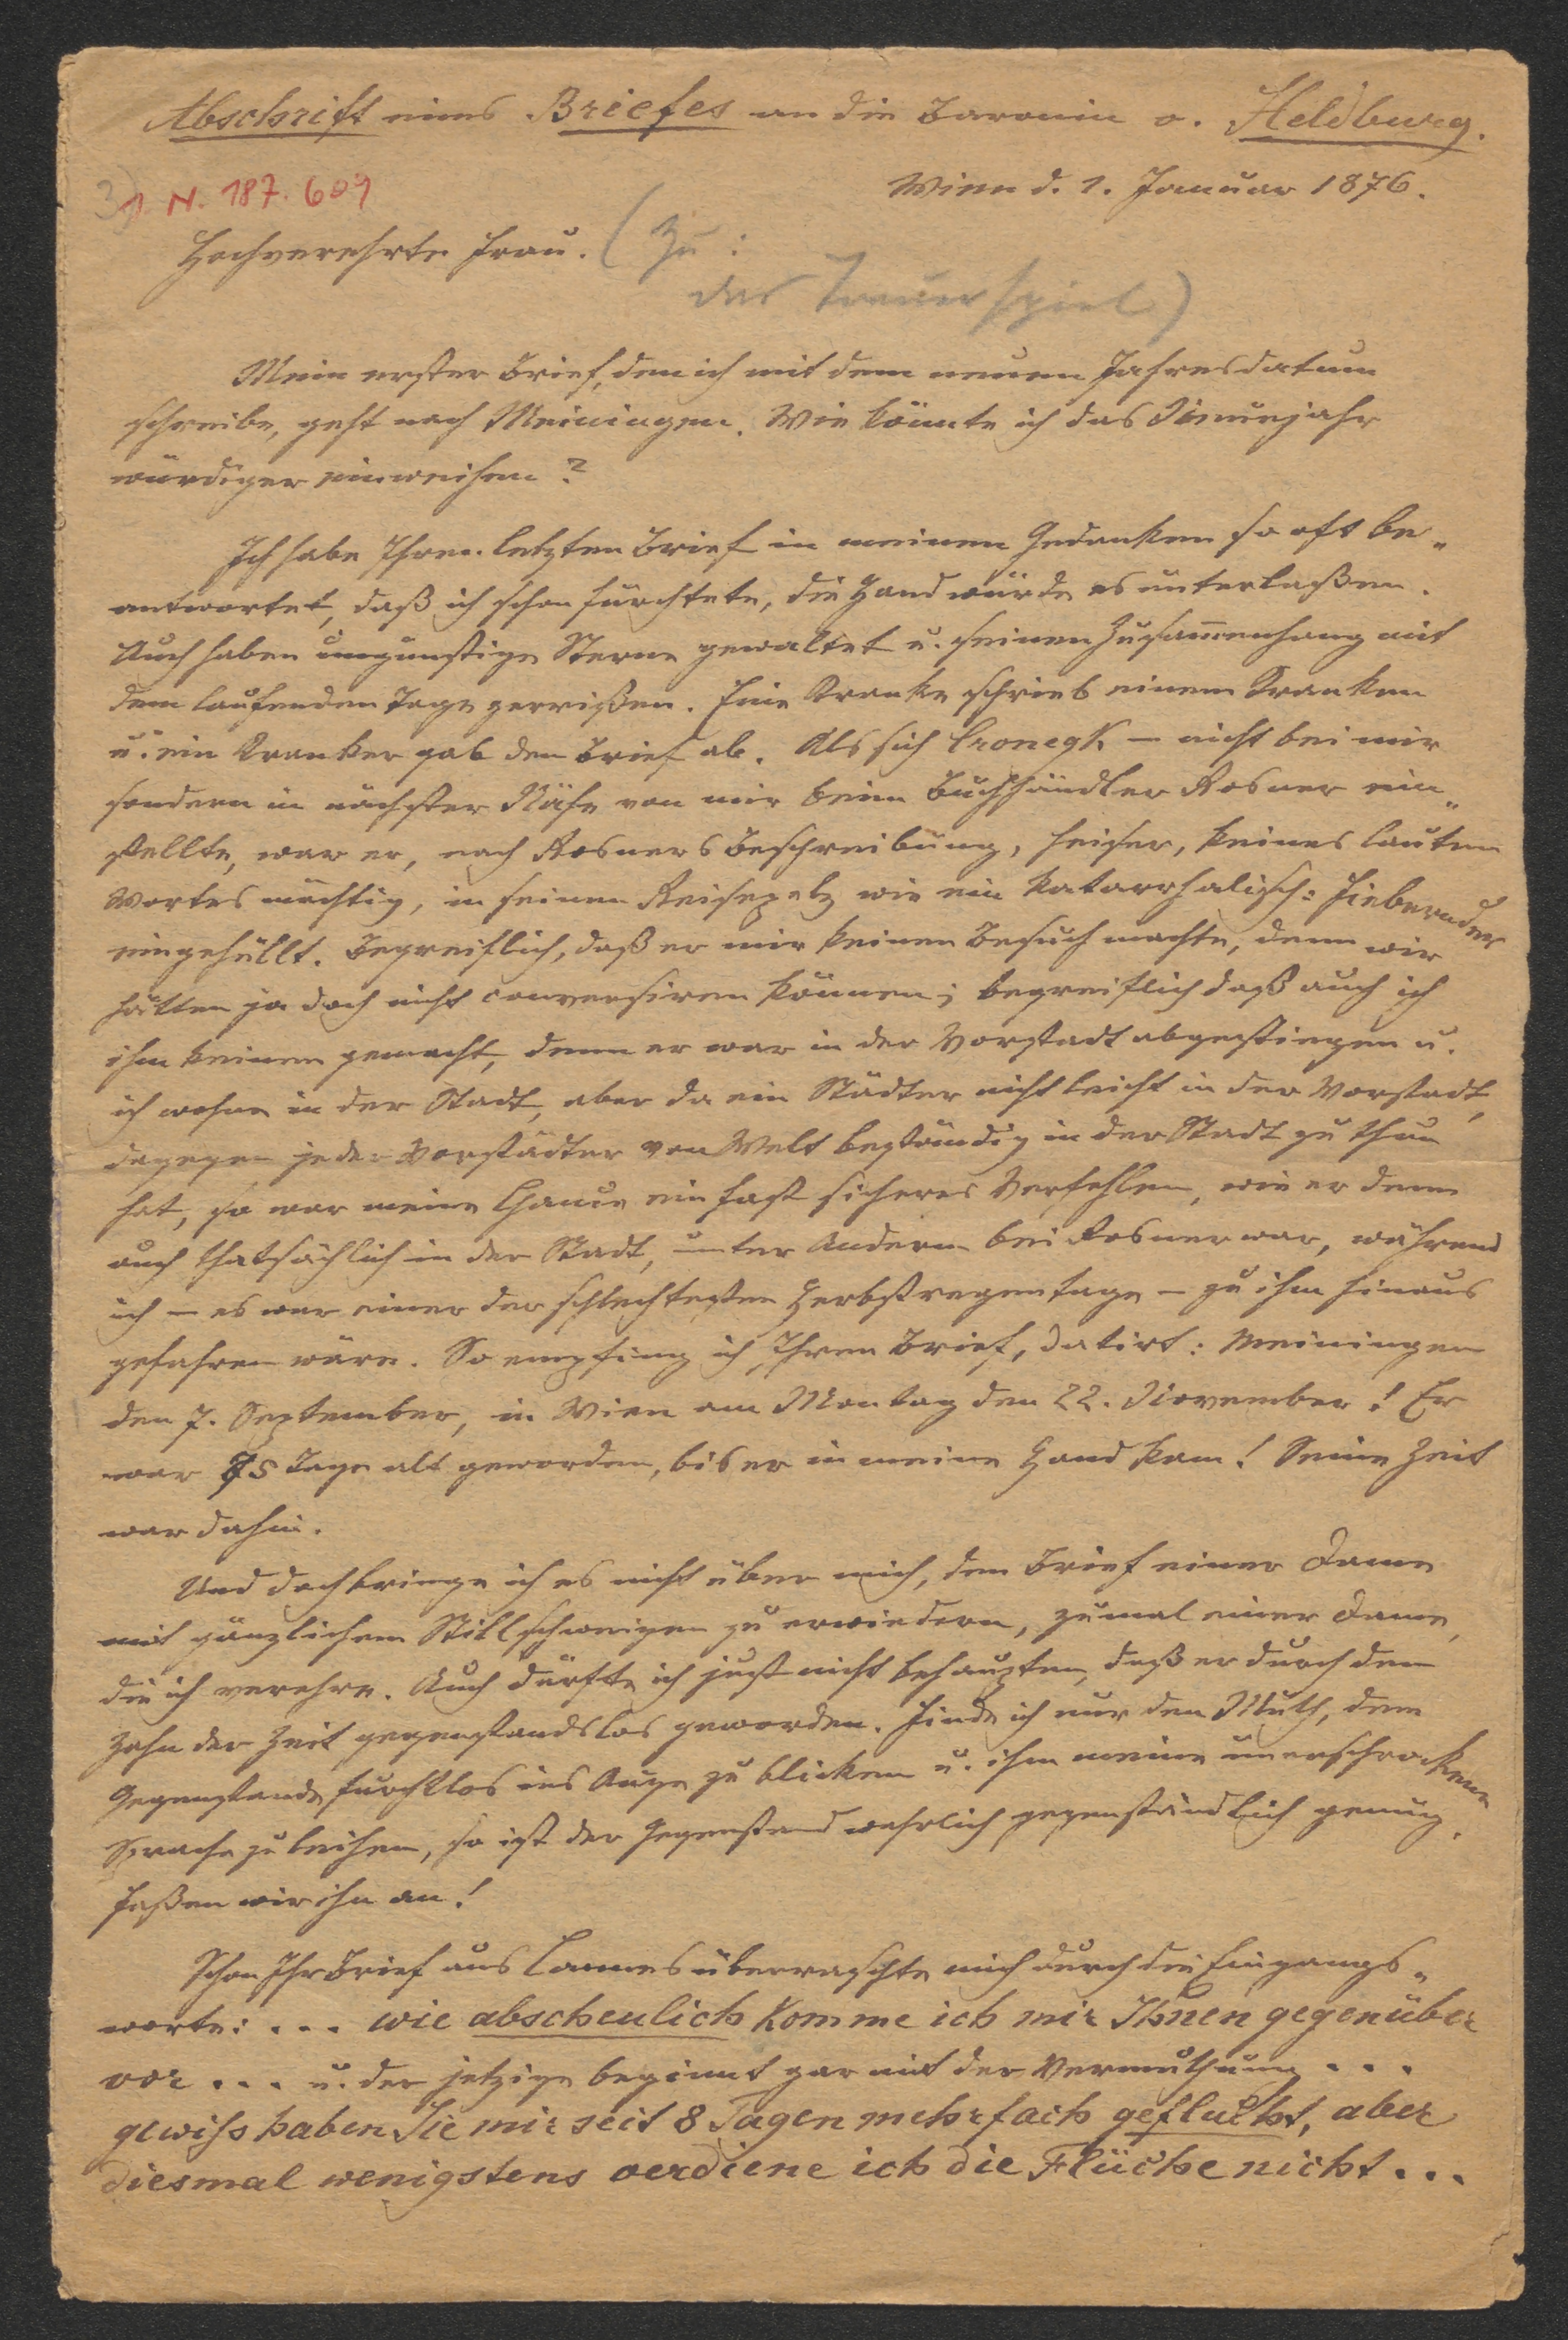 Abschrift eines Briefes an die Baronin v. Heldburg.
Wien d. 1. Januar 1876.
J. N. 187.609
Hochverehrte Frau. (Zu:
das Trauerspiel)
Mein erster Brief, den ich mit dem neuen Jahresdatum
schreibe, geht nach Meiningen. Wie könnte ich das Neuejahr
würdiger einweihen?
Ich habe Ihren letzten Brief in meinen Gedanken so oft be„
antwortet, daß ich schon fürchtete, die Hand würde es unterlaßen.
Auch haben ungünstige Sterne gewaltet u. seinen Zusam̅enhang mit
dem laufenden Tage zerrißen. Eine Kranke schrieb einem Kranken
u. ein Kranker gab den Brief ab. Als sich Cronegk – nicht bei mir
sondern in nächster Nähe von mir beim Buchhändler Rosner ein„
stellte, war er, nach Rosners Beschreibung, heiser, keines lauten
Wortes mächtig, in seinen Reisepelz wie ein katarrhalisch: Fiebernder
eingehüllt. Begreiflich, daß er mir keinen Besuch machte, denn wir
hätten ja doch nicht conversiren können; begreiflich daß auch ich
ihm keinen gemacht, denn er war in der Vorstadt abgestiegen u.
ich wohne in der Stadt, aber da ein Städter nicht leicht in der Vorstadt,
dagegen jeder Vorstädter von Welt beständig in der Stadt zu thun
hat, so war meine Chance ein fast sicheres Verfehlen, wie er denn
auch thatsächlich in der Stadt, unter Andern bei Rosner war, während
ich – es war einer der schlechtesten Herbstregentage – zu ihm hinaus
gefahren wäre. So empfing ich Ihren Brief, datirt: Meiningen
den 7. September, in Wien am Montag den 22. November! Er
war 75 Tage alt geworden, bis er in meine Hand kam! Seine Zeit
war dahin.
Und doch bringe ich es nicht über mich, den Brief einer Dame
mit gänzlichem Stillschweigen zu erwiedern, zumal einer Dame,
die ich verehre. Auch dürfte ich just nicht behaupten, daß er durch den
Zahn der Zeit gegenstandslos geworden. Finde ich nur den Muth, dem
Gegenstande furchtlos ins Auge zu blicken u. ihm meine unerschrockene
Sprache zu leihen, so ist der Gegenstand wahrlich gegenständlich genug.
Faßen wir ihn an!
Schon Ihr Brief aus Cannes überraschte mich durch die Eingangs„
worte: ... wie abscheulich komme ich mir Ihnen gegenüber
vor ... u. der jetzige beginnt gar mit der Vermuthung ...
gewiss haben Sie mir seit 8 Tagen mehrfach geflucht, aber
diesmal wenigstens verdiene ich die Flüche nicht ...